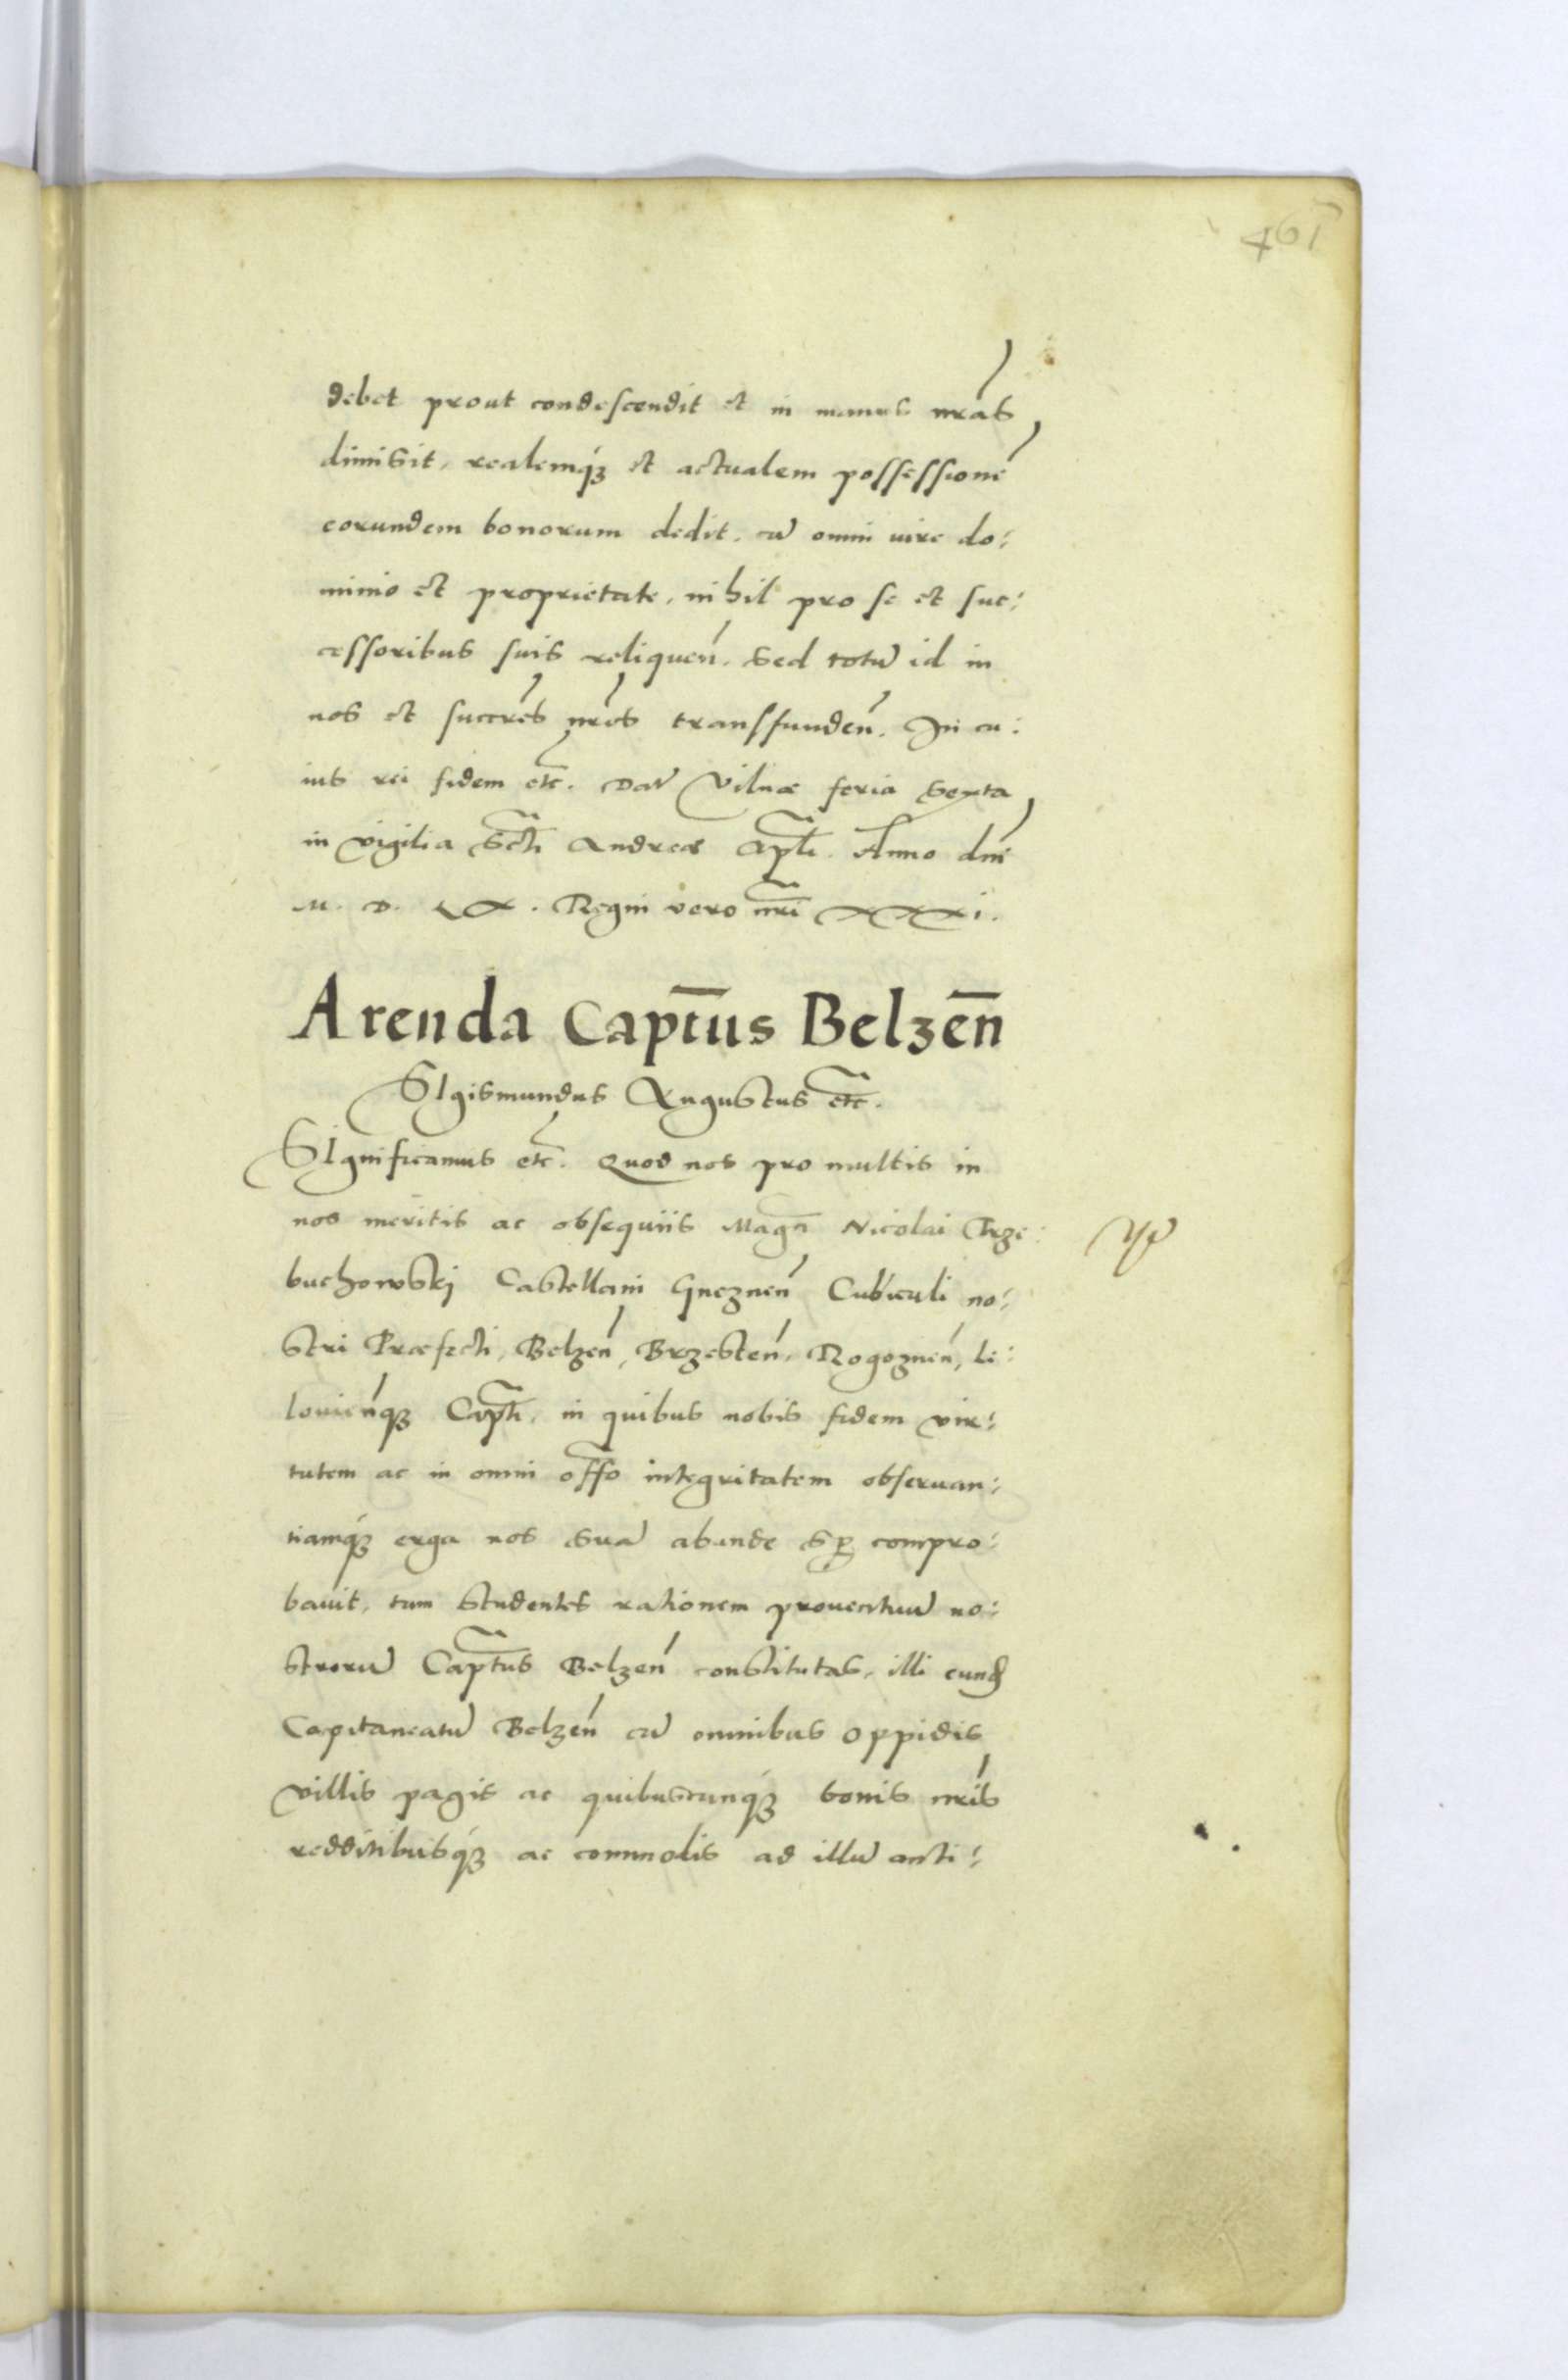 461
debet prout condescendit et in manus nr̃as
dimisit, realemq́ꝫ et actualem possessionẽ
eorundem bonorum dedit, cũ omni iure do:
minio et proprietate, nihil pro se et suc:
cessoribus suis reliqueñ. Sed totũ id in
nos et succr̃es nr̃os transfundeñ. In cu:
ius rei fidem etc̃. Dat̃ Vilnæ feria sexta
in vigilia Scti̅ Andreæ Apl̃i. Anno dnĩ
M. D. LX. Regni vero nr̃i XXXI.
Arenda Capt̅us Belzen̅
SIgismundus Augustus etc̃.
SIgnificamus etc̃. Quod nos pro multis in
nos meritis ac obsequiis Magñ Nicolai Trze:
buchowskj Castellani Gneznen̅ Cubiculi no:
stri Præfecti, Belzeñ, Brzesteñ, Rogoznen̅, Le:
loviеñqꝫ Capt̅i, in quibus nobis fidem vir:
tutem ac in omni off̃o integritatem observan:
tiamq́ꝫ erga nos suã abunde sꝑ compro:
bavit, tum studentes rationem proventuũ no:
strorũ Capt̅us Belzeñ constitutas, illi eund̃
Capitaneatũ Belzeñ cũ omnibus oppidis
villis pagis ac quibuscunq́ꝫ bonis nr̃is
redditibusq́ꝫ ac commodis ad illũ anti: